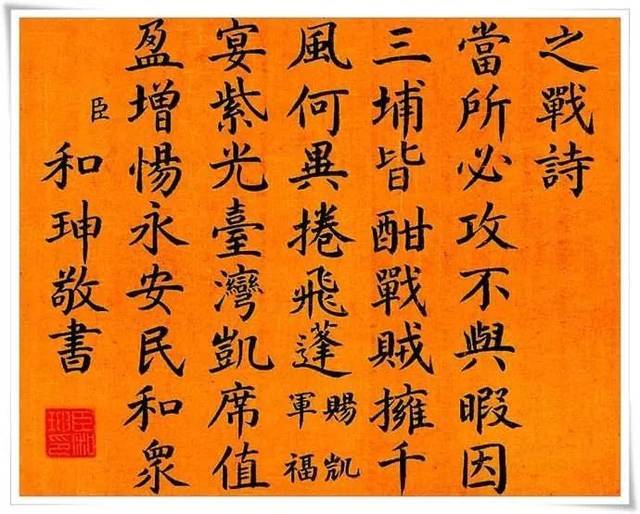 之戰詩
當所必攻不與暇因
三埔皆酣戰賊擁千
風何異捲飛蓬
賜凱
軍福
宴紫光臺灣凱席值
盈增惕永安民和眾
臣和珅敬書
臣和珅印